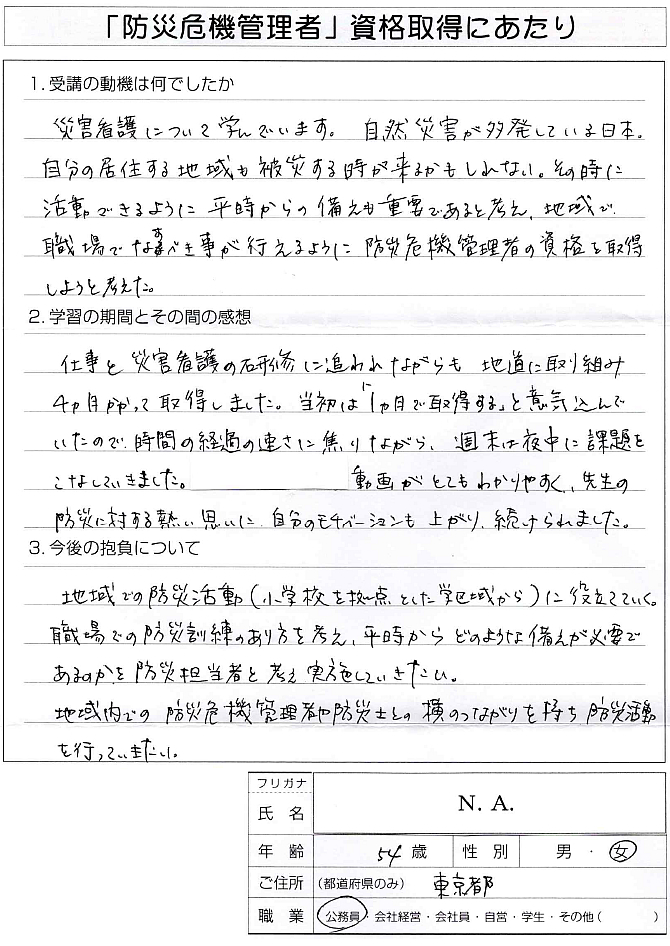 「防災危機管理者」資格取得にあたり
1. 受講の動機は何でしたか
災害看護について学んでいます。 自然災害が多発している日本。
自分の居住する地域も被災する時が来るかもしれない。その時に
活動できるように 平時からの備えも重要であると考え、地域で
職場でなすべき事が行えるように 防災危機管理者の資格を取得
しようと考えた。
2. 学習の期間とその間の感想
仕事と 災害看護の研修に追われながらも 地道に取り組み
4ヵ月かかって取得しました。当初は「1ヵ月で取得する」と意気込んで
いたので、時間の経過の速さに焦りながら、週末は夜中に課題を
こなしていきました。 動画がとてもわかりやすく、先生の
防災に対する熱い思いに 自分のモチベーションも上がり、続けられました。
3. 今後の抱負について
地域での防災活動(小学校を拠点とした学区域から)に役立てていく。
職場での防災訓練のあり方を考え、平時から どのような備えが必要で
あるのかを防災担当者と考え実施していきたい。
地域内での 防災危機管理者や防災士との横のつながりを持ち 防災活動
を行っていきたい。
フリガナ
氏名 N. A.
年齢 54歳 性別 男・女
ご住所 (都道府県のみ) 東京都
職業 公務員・会社経営・会社員・自営・学生・その他( )